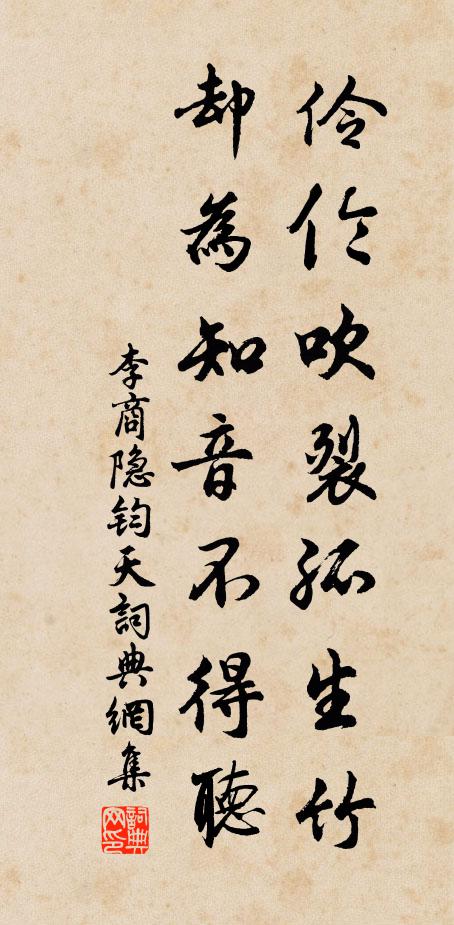 伶伦吹裂孤生竹
却為知音不得聽
李商隐钧天詞典網集
詞典
网印